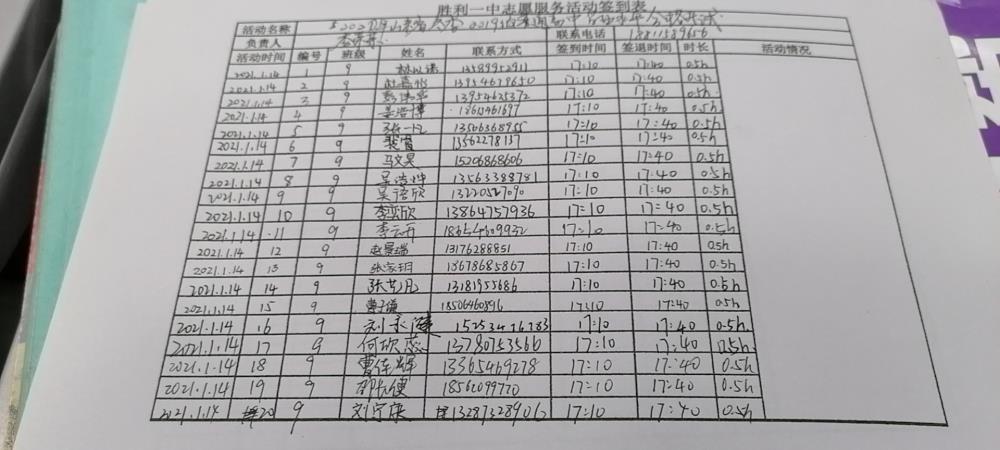 胜利一中志愿服务活动签到表
活动名称
负责人 联系电话 18811589656
活动时间 编号 班级 姓名 联系方式 签到时间 签退时间 时长 活动情况
2021.1.14 1 9 13589952911 17:10 17:40 0.5h
2021.1.14 2 9 13954679650 17:10 17:40 0.5h
2021.1.14 3 9 13954625372 17:10 17:40 0.5h
2021.1.14 4 9 姜浩博 18615461697 17:10 17:40 0.5h
2021.1.14 5 9 张一凡 13506368955 17:10 17:40 0.5h
2021.1.14 6 9 13562278137 17:10 17:40 0.5h
2021.1.14 7 9 马文昊 15206868606 17:10 17:40 0.5h
2021.1.14 8 9 13563388781 17:10 17:40 0.5h
2021.1.14 9 9 吴语欣 13220527090 17:10 17:40 0.5h
2021.1.14 10 9 李奕欣 13864757936 17:10 17:40 0.5h
2021.1.14 11 9 李云开 18654609932 17:10 17:40 0.5h
2021.1.14 12 9 赵景瑞 13176288851 17:10 17:40 0.5h
2021.1.14 13 9 张家玥 13678685867 17:10 17:40 0.5h
2021.1.14 14 9 张艺凡 13181955686 17:10 17:40 0.5h
2021.1.14 15 9 曹子谦 17:10 17:40 0.5h
2021.1.14 16 9 17:10 17:40 0.5h
2021.1.14 17 9 何欣蕊 13780753566 17:10 17:40 0.5h
2021.1.14 18 9 曹佳辉 13365469278 17:10 17:40 0.5h
2021.1.14 19 9 18562099770 17:10 17:40 0.5h
2021.1.14 20 9 刘宇庚 13287328906 17:10 17:40 0.5h